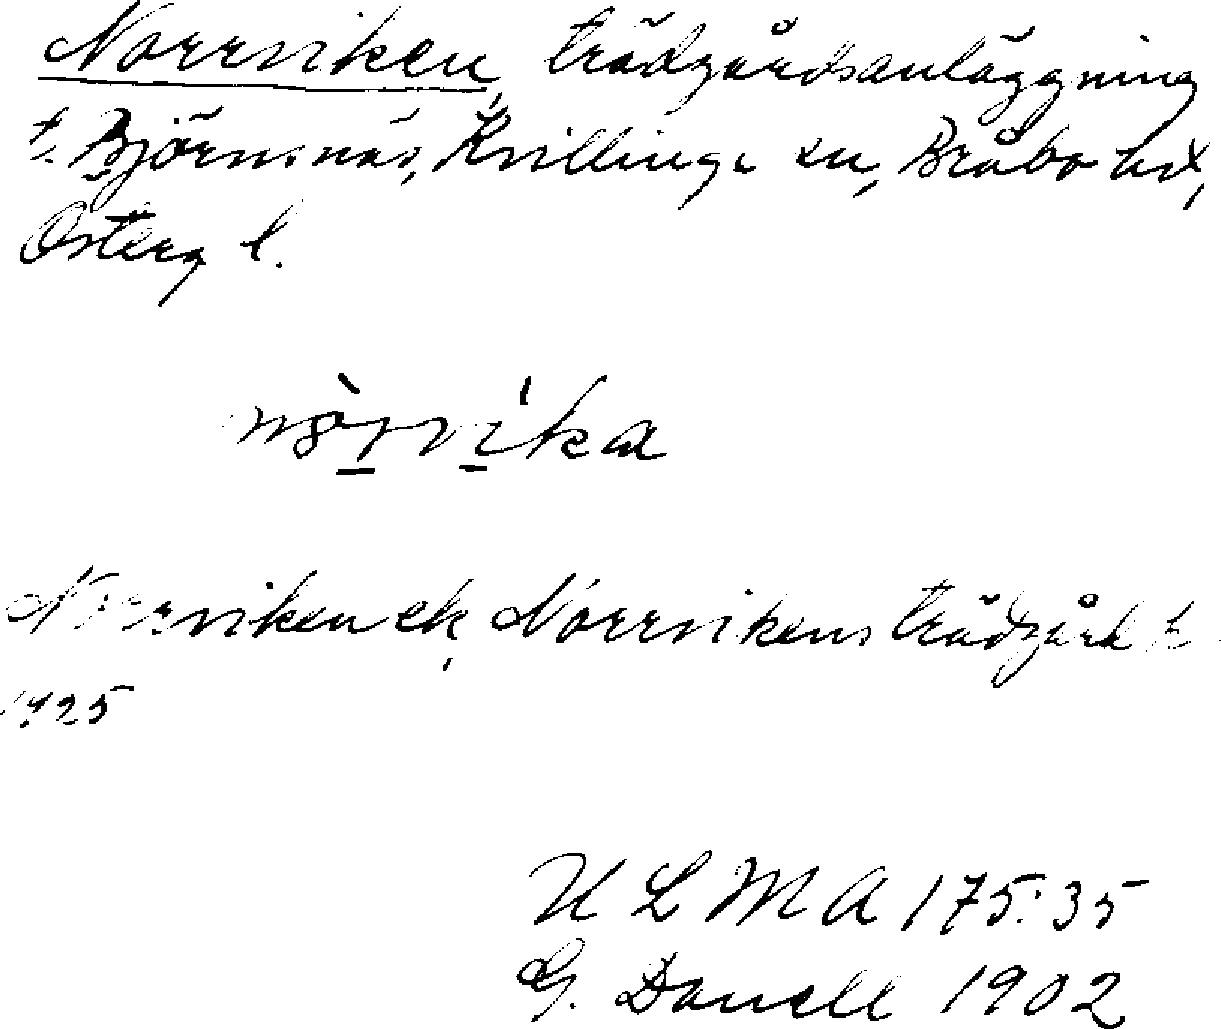 Norrviken, trädgårdsanläggning
t. Björnsnäs, Kvillinge sn, Bråbo hd,
Österg l.
nòrvika
Norrviken ek, Norrvikens trädgård
1725
U L M A 175:35
G. Danell 1902